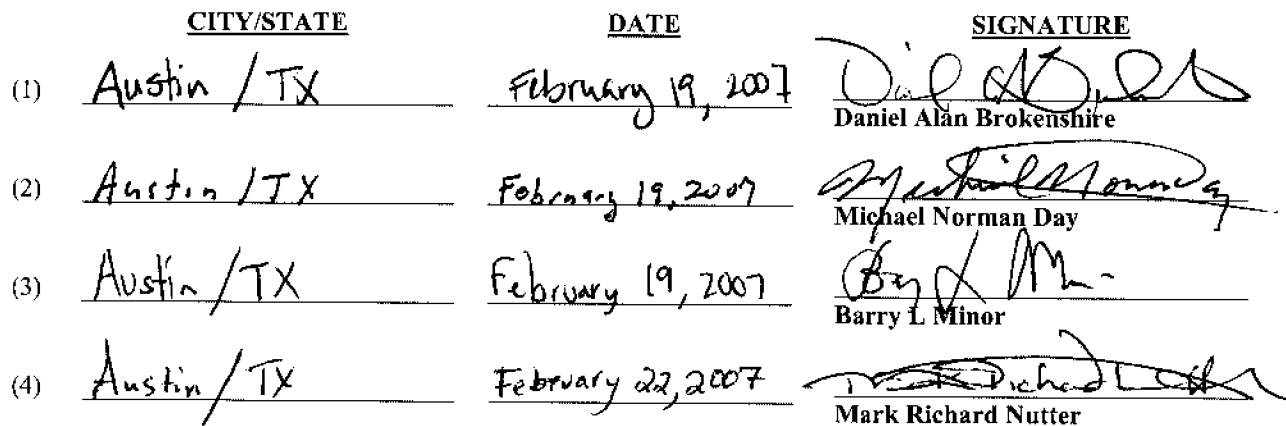 CITY/STATE DATE SIGNATURE
(1) Austin / TX February 19, 2007
Daniel Alan Brokenshire
(2) Austin / TX February 19, 2007 Michael Norman Day
Michael Norman Day
(3) Austin / TX February 19, 2007 Barry L Minor
Barry L Minor
(4) Austin / TX February 22, 2007 Mark Richard Nutter
Mark Richard Nutter